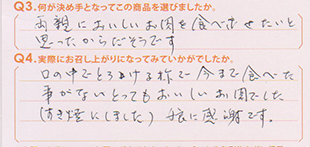 Q3.何が決め手となってこの商品を選びましたか。
両親においしいお肉を食べさせたいと
思ったからだそうです
Q4.実際にお召し上がりになってみていかがでしたか。
口の中でとろける様で今まで食べた
事がないとってもおいしいお肉でした
(すき焼にしました) 娘に感謝です。